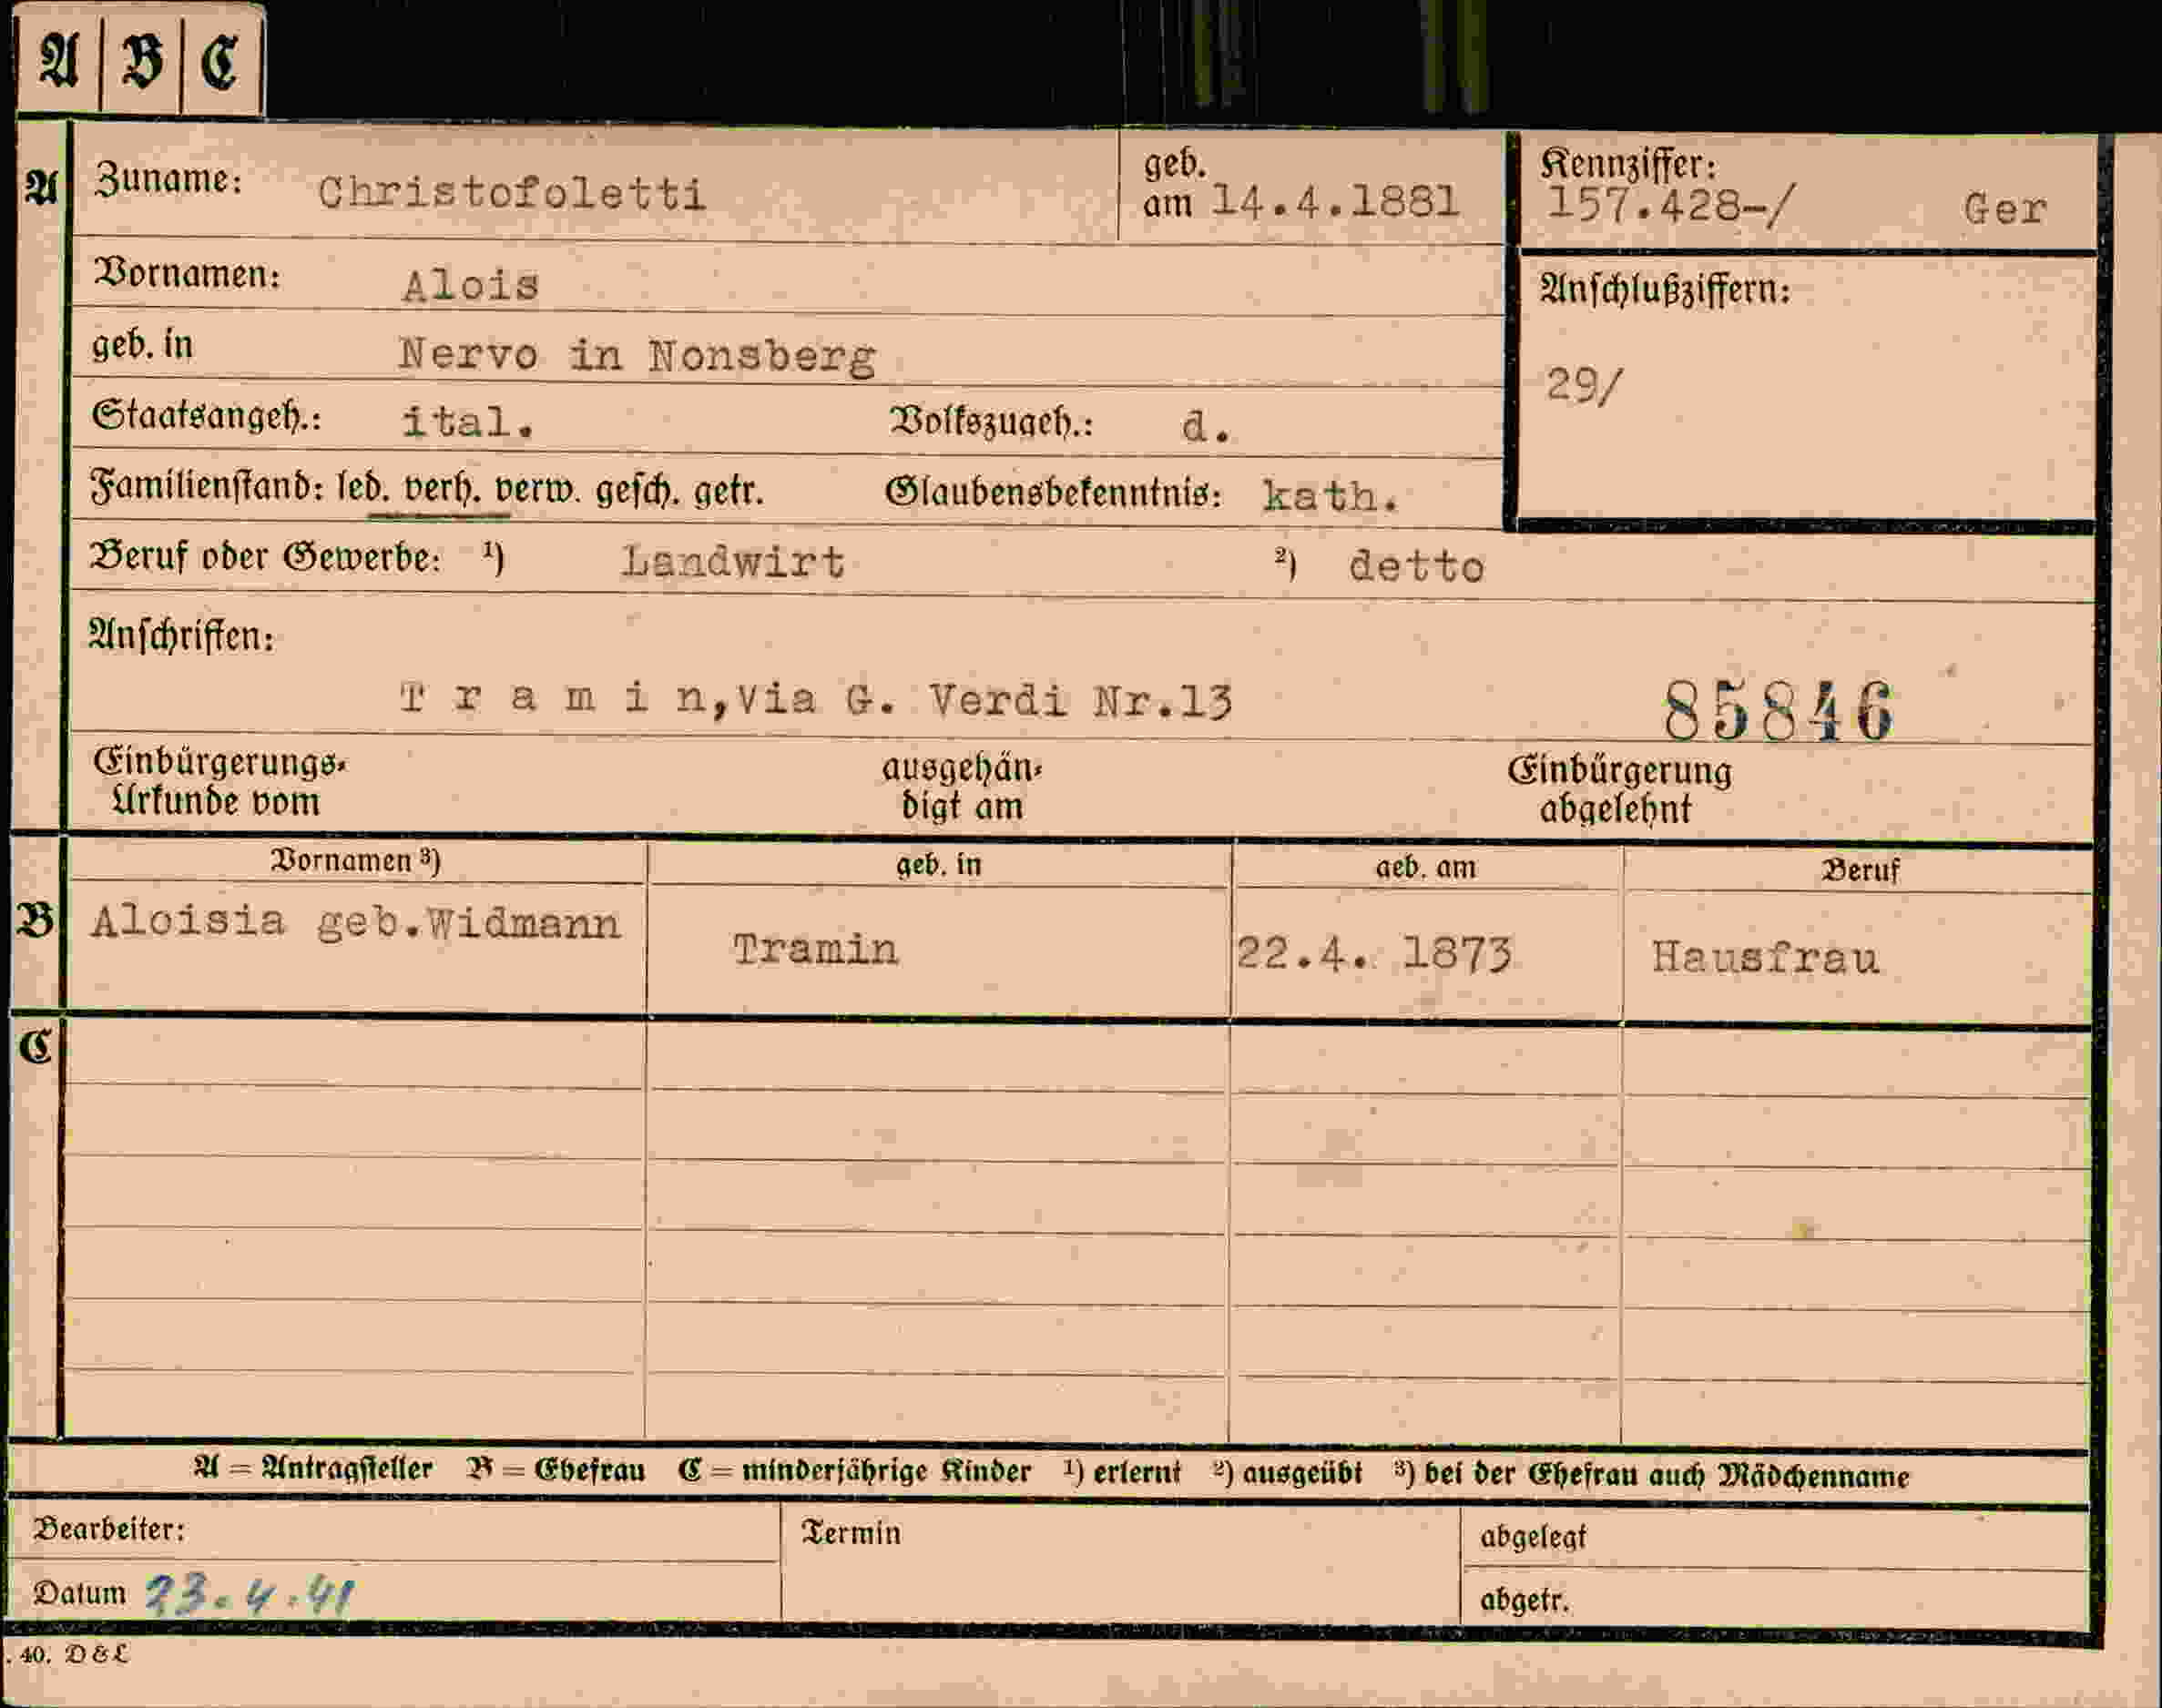 A B C
A Zuname: Christofoletti geb. am 14.4.1881 Kennziffer: 157.428-/ Ger
Vornamen: Alois Anschlußziffern:
geb. in Nervo in Nonsberg 29/
Staatsangeh.: ital. Volkszugeh.: d.
Familienstand: led. verh. verw. gesch. getr. Glaubensbekenntnis: kath.
Beruf oder Gewerbe: ¹) Landwirt ²) detto
Anschriften:
T r a m i n, Via G. Verdi Nr.13 85846
Einbürgerungs- ausgehän- Einbürgerung
Urkunde vom digt am abgelehnt
Vornamen ³) geb. in geb. am Beruf
B Aloisia geb.Widmann Tramin 22.4. 1873 Hausfrau
C
A = Antragsteller B = Ehefrau C = minderjährige Kinder ¹) erlernt ²) ausgeübt ³) bei der Ehefrau auch Mädchenname
Bearbeiter: Termin abgelegt
Datum 23.4.41 abgetr.
. 40. D & L